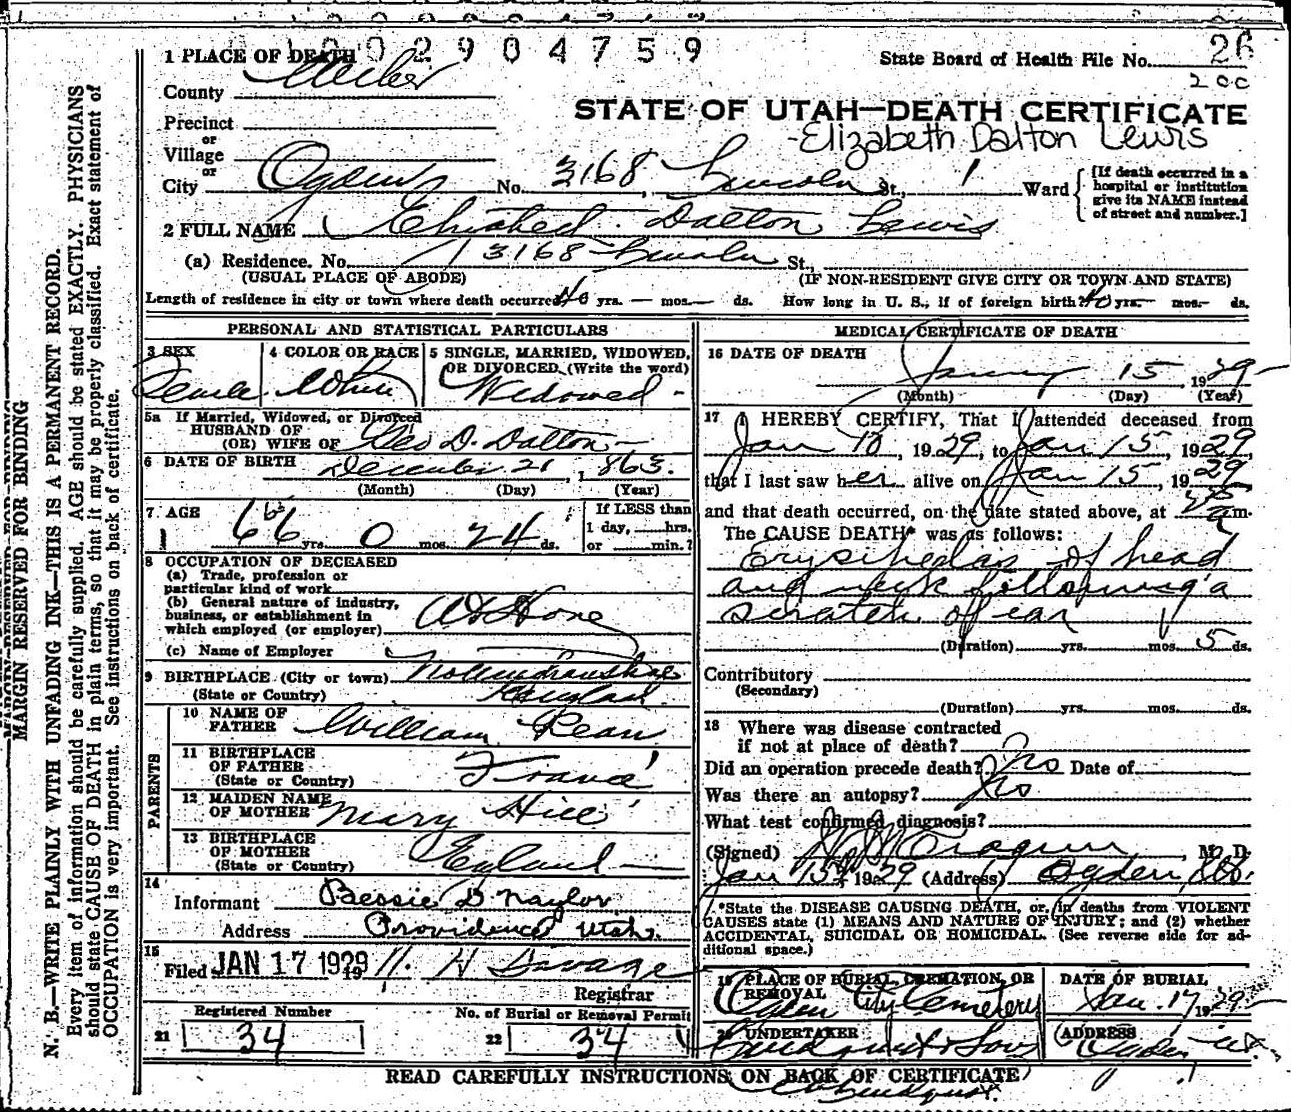 1 0 0 2 9 0 4 7 5 9
1 PLACE OF DEATH
State Board of Health File No. 26
200
County Weber
STATE OF UTAH—DEATH CERTIFICATE
Precinct
Elizabeth Dalton Lewis
or
Village
or
City Ogden No. 3168 Lincoln St., 1 Ward
[If death occurred in a hospital or institution give its NAME instead of street and number.]
2 FULL NAME Dalton Lewis
(a) Residence. No. 3168 Lincoln St.
(USUAL PLACE OF ABODE) (IF NON-RESIDENT GIVE CITY OR TOWN AND STATE)
Length of residence in city or town where death occurred 40 yrs. — mos. — ds. How long in U. S., if of foreign birth? 40 yrs. — mos. - ds.
PERSONAL AND STATISTICAL PARTICULARS
3 SEX Female
4 COLOR OR RACE White
5 SINGLE, MARRIED, WIDOWED, OR DIVORCED (Write the word) Widowed -
5a If Married, Widowed, or Divorced
HUSBAND OF
(OR) WIFE OF Geo D. Dalton —
6 DATE OF BIRTH December 21, 1863.
(Month) (Day) (Year)
7. AGE 66 65 yrs. 0 mos. 24 ds.
If LESS than
1 day, hrs.
or min.?
8 OCCUPATION OF DECEASED
(a) Trade, profession or
particular kind of work
(b) General nature of industry,
business, or establishment in
which employed (or employer) At Home
(c) Name of Employer
9 BIRTHPLACE (City or town)
(State or Country) England
PARENTS
10 NAME OF
FATHER William
11 BIRTHPLACE
OF FATHER
(State or Country) France
12 MAIDEN NAME
OF MOTHER Mary Hill
13 BIRTHPLACE
OF MOTHER
(State or Country) England —
14
Informant Bessie D Naylor
Address Providence Utah.
15
Filed JAN 17 1929 19 H Savage
Registrar
Registered Number
21 34
No. of Burial or Removal Permit
22 34
MEDICAL CERTIFICATE OF DEATH
16 DATE OF DEATH January 15 1929
(Month) (Day) (Year)
17 I HEREBY CERTIFY, That I attended deceased from
Jan 10, 1929, to Jan 15, 1929,
that I last saw her alive on Jan 15, 1929
and that death occurred, on the date stated above, at m.
The CAUSE DEATH* was as follows:
Erysipelas of head
and neck following a
scratch of ear
(Duration) yrs. mos. 5 ds.
Contributory
(Secondary)
(Duration) yrs. mos. ds.
18 Where was disease contracted
if not at place of death?
Did an operation precede death? No Date of
Was there an autopsy? No
What test confirmed diagnosis?
(Signed) , M. D.
Jan 15, 1929 (Address) Ogden,
*State the DISEASE CAUSING DEATH, or, in deaths from VIOLENT
CAUSES state (1) MEANS AND NATURE OF INJURY; and (2) whether
ACCIDENTAL, SUICIDAL OR HOMICIDAL. (See reverse side for ad-
ditional space.)
19 PLACE OF BURIAL, CREMATION, OR
REMOVAL Ogden City Cemetery
DATE OF BURIAL
Jan. 17, 1929
20 UNDERTAKER
Lindquist & Sons
(ADDRESS)
Ogden Ut.
READ CAREFULLY INSTRUCTIONS ON BACK OF CERTIFICATE
Lindquist.
MARGIN RESERVED FOR BINDING
N. B.—WRITE PLAINLY WITH UNFADING INK—THIS IS A PERMANENT RECORD.
Every item of information should be carefully supplied. AGE should be stated EXACTLY. PHYSICIANS
should state CAUSE OF DEATH in plain terms, so that it may be properly classified. Exact statement of
OCCUPATION is very important. See instructions on back of certificate.